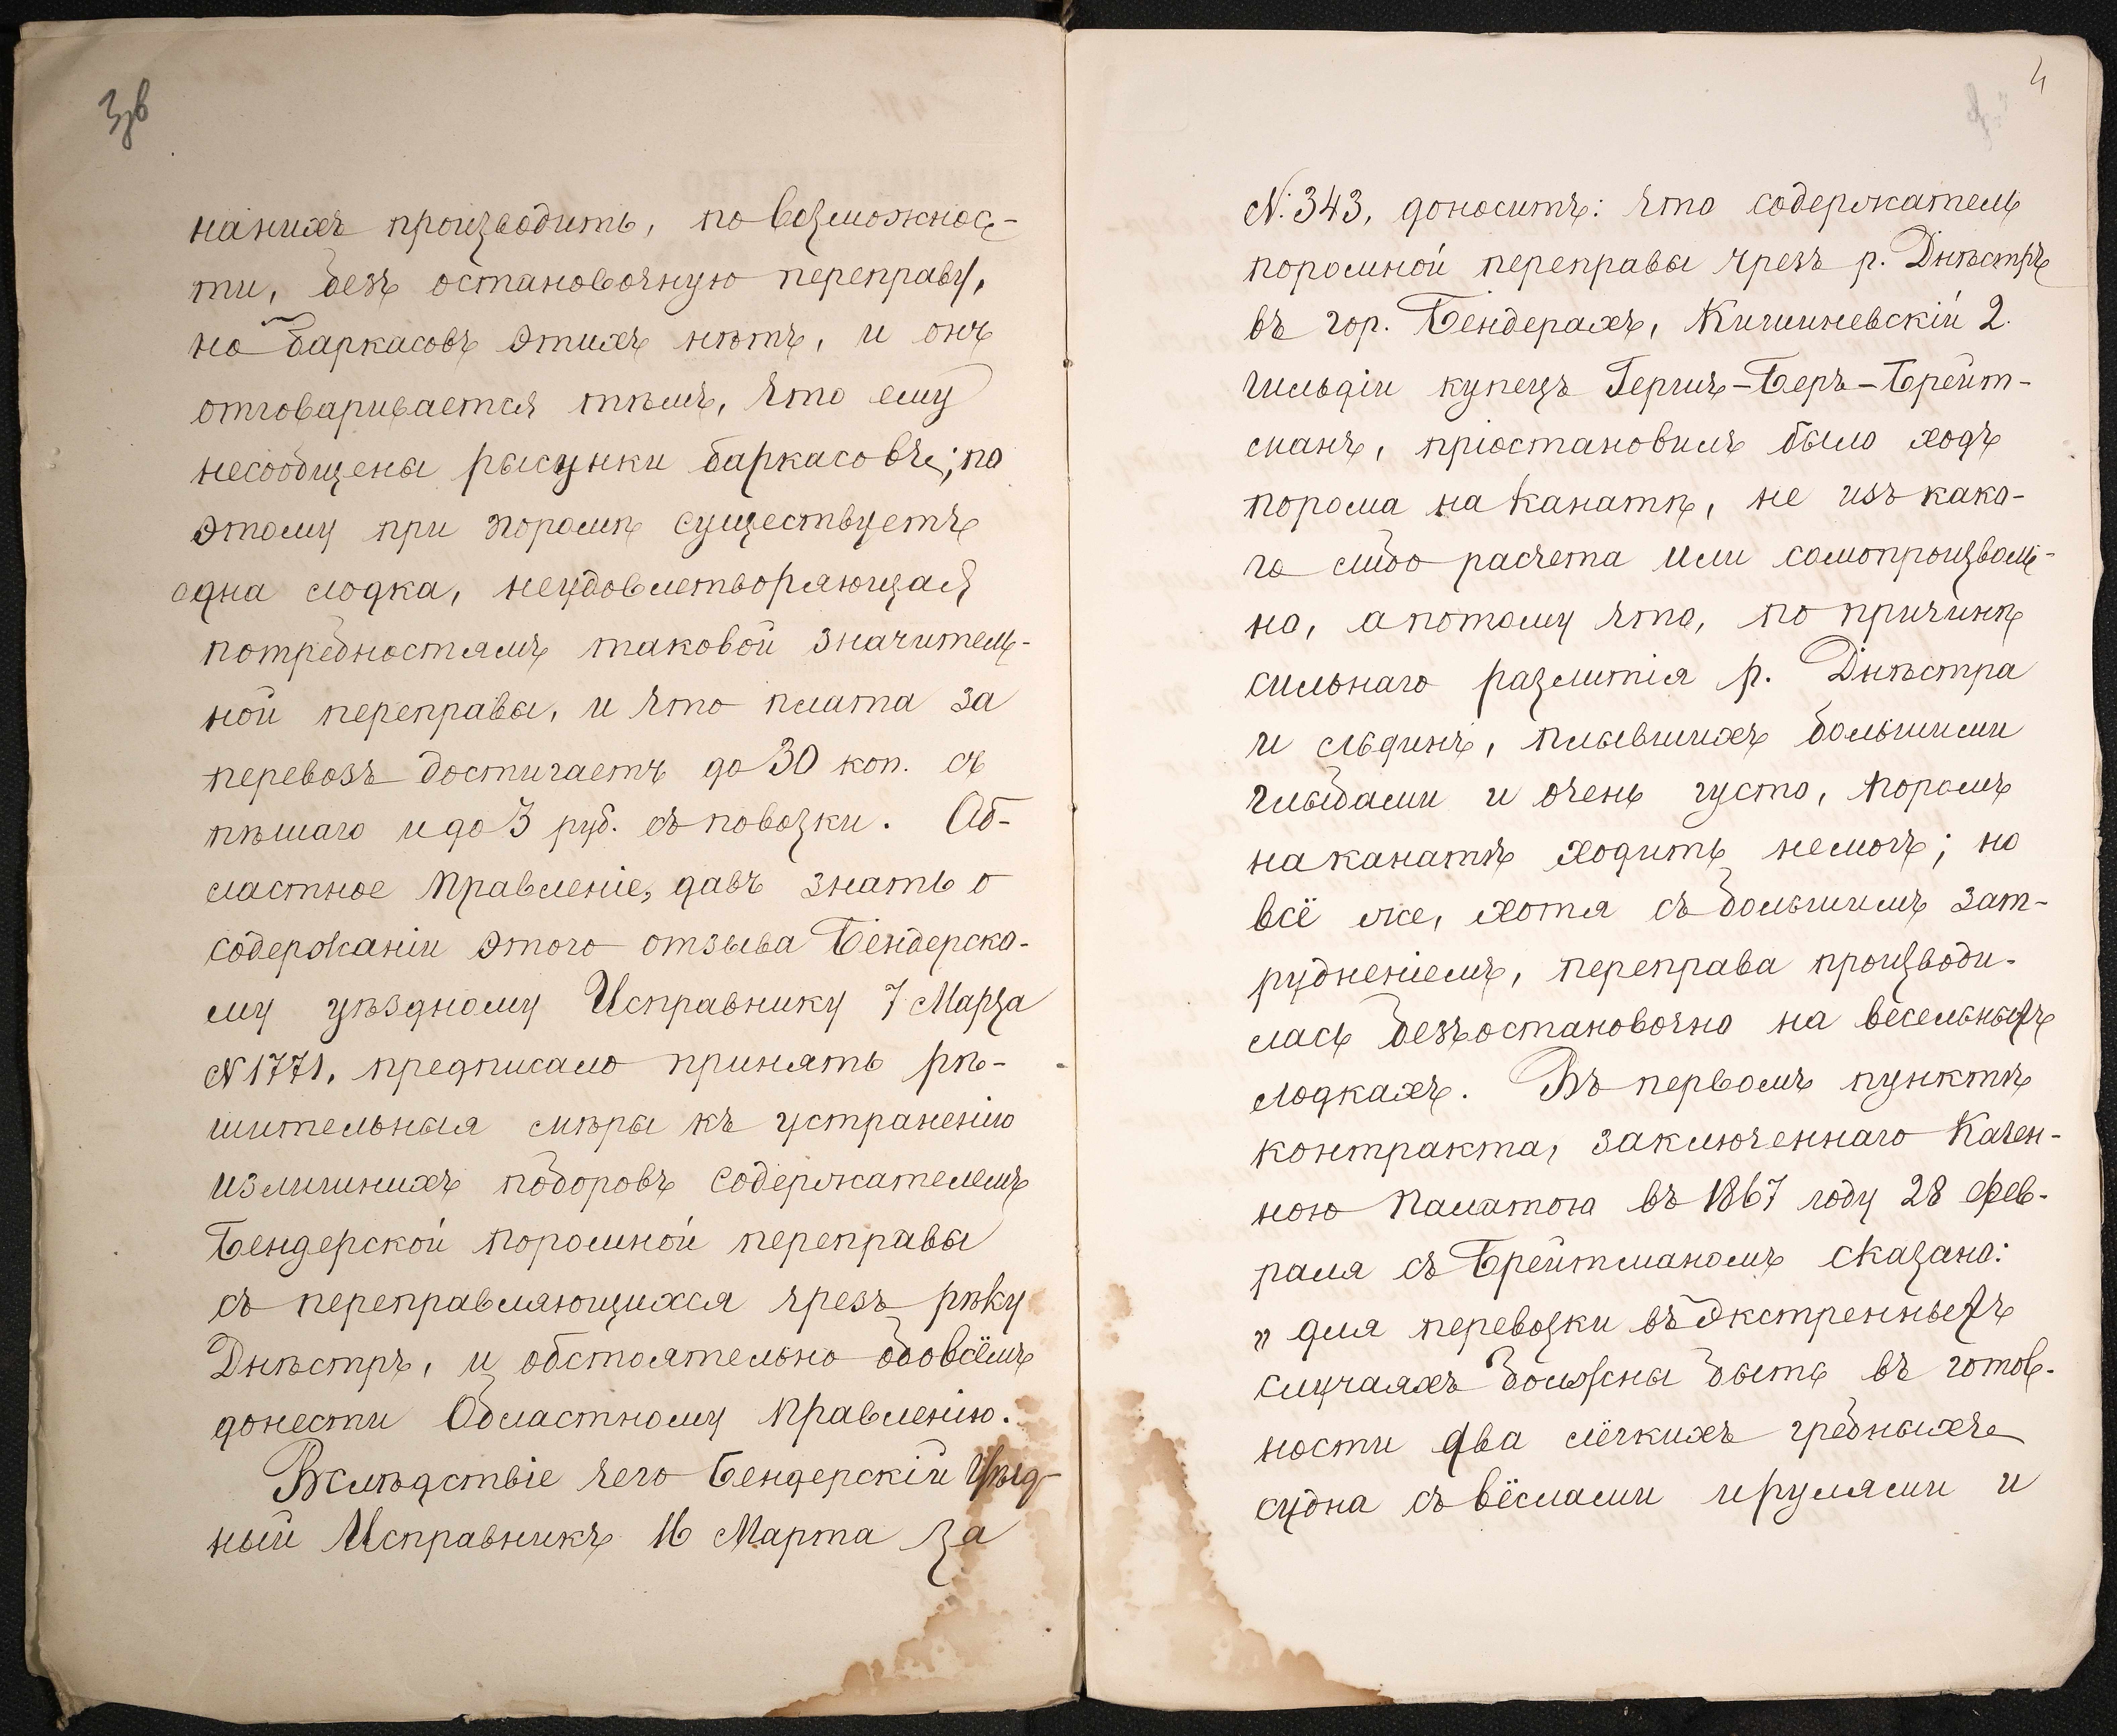 3об
нанихъ производить, по возможнос-
ти, безъ остановочную переправу,
но баркасовъ этихъ нѣтъ, и онъ
отговаривается тѣмъ, что ему
несообщены рысунки баркасовъ; по
этому при поромѣ существуетъ
одна лодка, неудовлетворяющая
потребностямъ таковой значитель-
ной переправы, и что плата за
перевозъ достигаетъ до 30 коп. съ
пѣшаго и до 3 руб. съ повозки. Об-
ластное Правленіе, давъ знать о
содержаніи этого отзыва Бендерско-
му уѣздному Исправнику 7 Марта
№ 1771, предписало принять рѣ-
шительныя мѣры къ устраненію
излишнихъ поборовъ содержателемъ
Бендерской поромной переправы
съ переправляющихся чрезъ рѣку
Днѣстръ, и обстоятельно обовсёмъ
донести Областному Правленію.
Вслѣдствіе чего Бендерскій Уѣзд-
ный Исправникъ 16 Марта за
4
№ 343, доноситъ: что содержатель
поромной переправы чрезъ р. Днѣстръ
въ гор. Бендерахъ, Кишиневскій 2.
гильдіи купецъ Гершъ-Беръ-Брейт-
манъ, пріостановилъ было ходъ
порома на канатѣ, не изъ како-
го либо расчета или самопроизволь-
но, а потому что, по причинѣ
сильнаго разлитія р. Днѣстра
и льдинъ, плывшихъ большими
глыбами и очень густо, поромъ
на канатѣ ходить немогъ; но
всё же, хотя съ большимъ зат-
рудненіемъ, переправа производи-
лась безъостановочно на весельныхъ
лодкахъ. Въ первомъ пунктѣ
контракта, заключеннаго Казен-
ною Палатою въ 1867 году 28 Фев-
раля съ Брейтманомъ сказано:
„для перевозки въ экстренныхъ
случаяхъ должны быть въ готов-
ности два лёгкихъ гребныхъ
судна съ вёслами и рулями и